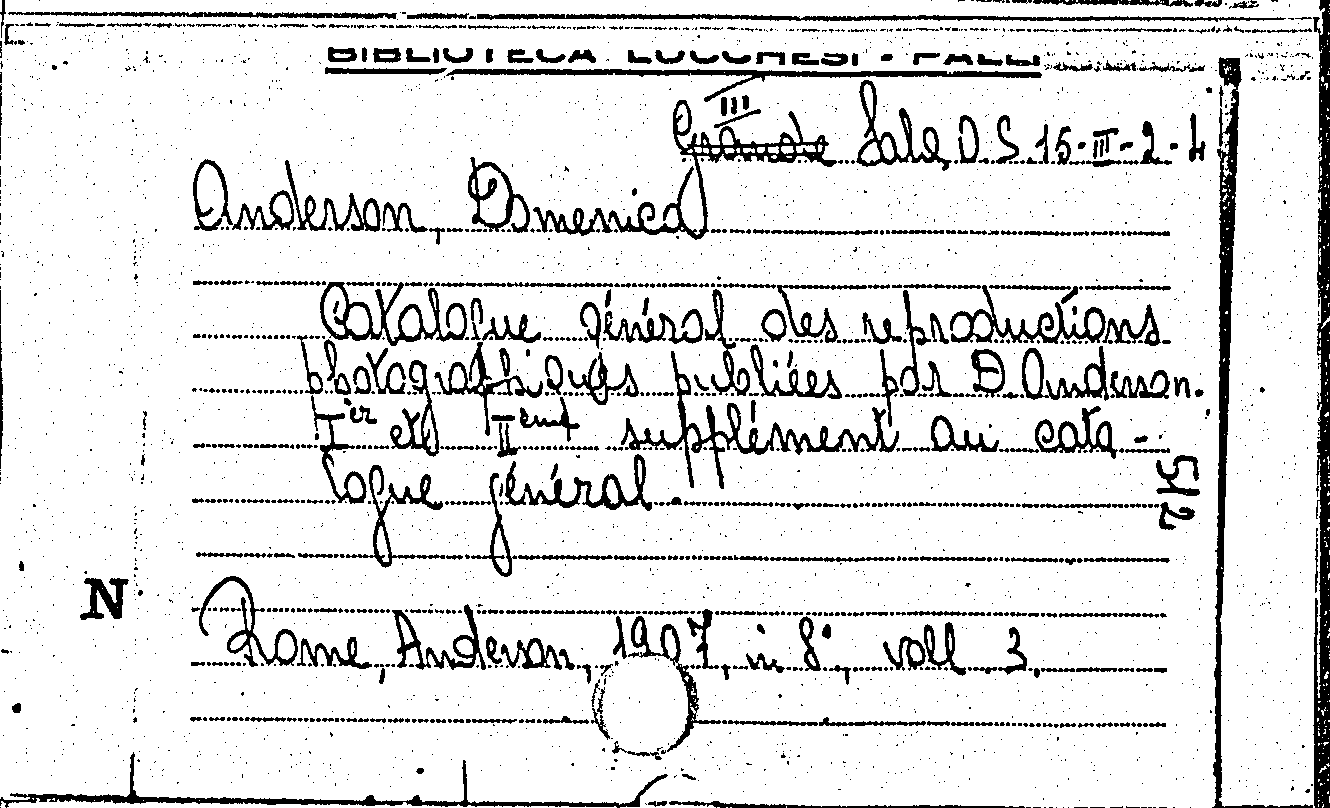 BIBLIOTECA LUCCHESI - PALLI
III
Grande Sala, O. S. 15-III-2-4
Anderson, Domenico
Catalogue général des reproductions
photographiques publiées par D. Anderson.
Ier et IIème supplément au cata-
logue général.
512
N
Rome, Anderson, 1907, in 8°, voll. 3.